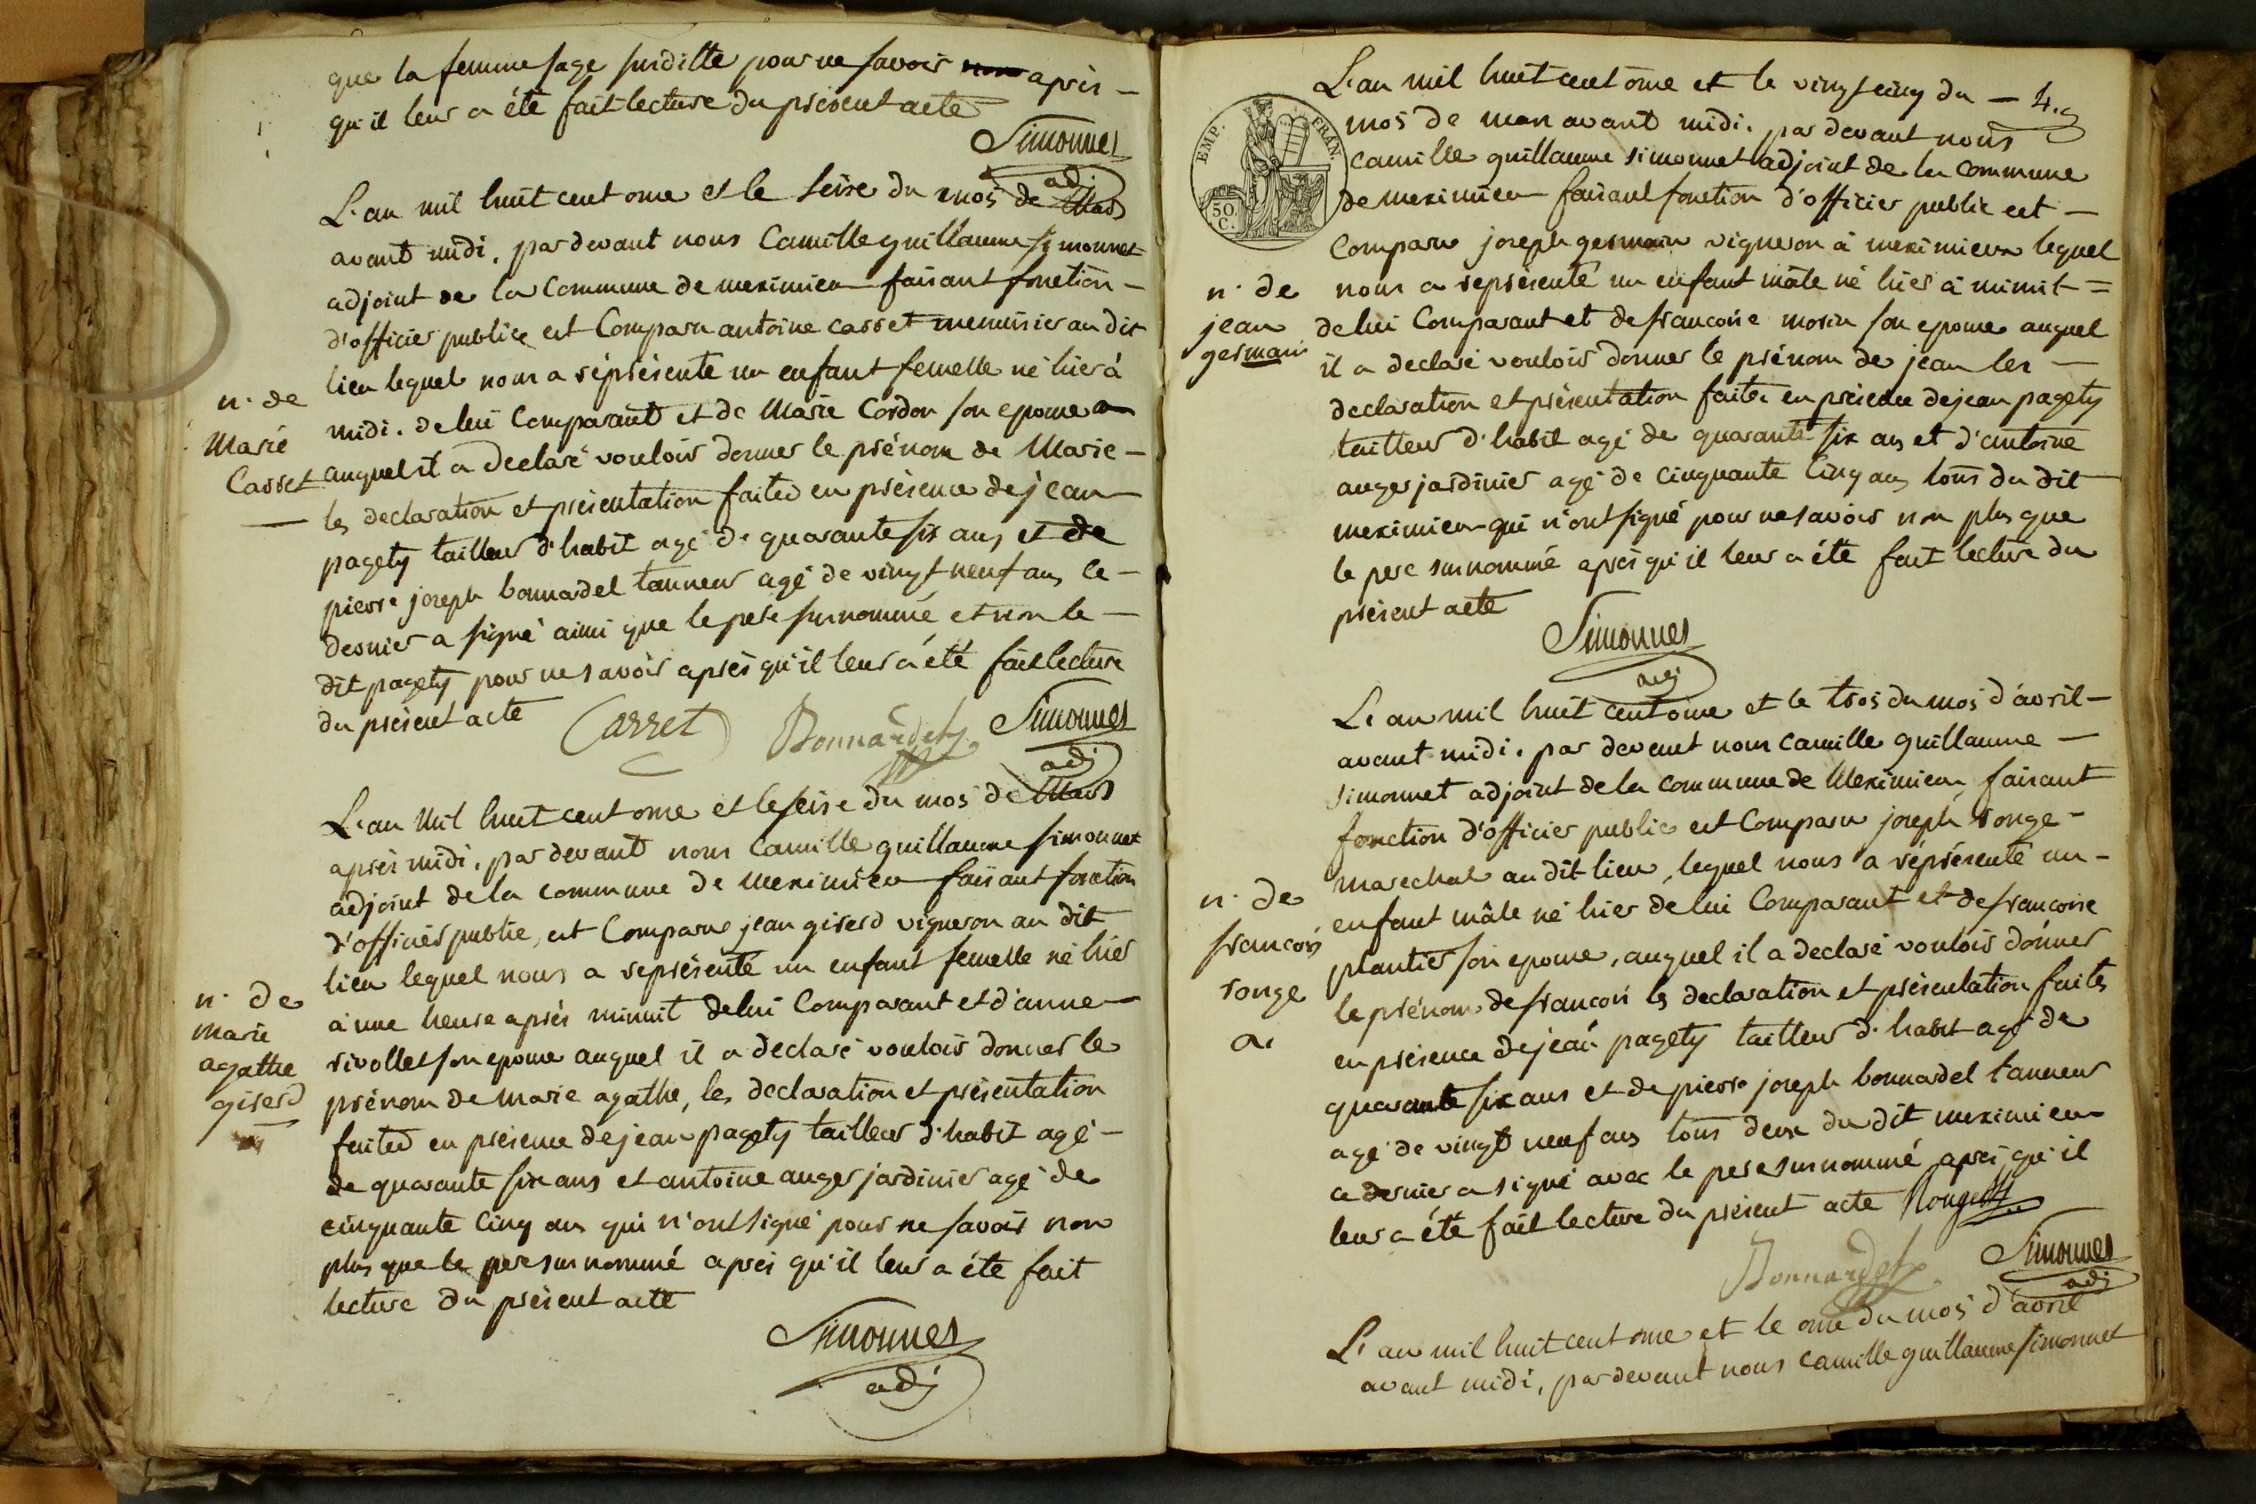 que la femme sage susditte pour ne savoir non après —
qu'il leur a été fait lecture du présent acte
Simonnet
adj
L'an mil huit cent onze et le seize du mois de Mars
avant midi, par devant nous Camille guillaume simonnet
adjoint de la Commune de meximieu faisant fonction —
d'officier public est Comparu antoine casset menuisier au dit
lieu lequel nous a réprésenté un enfant femelle né hier à
n. de
Marie
Casset
midi. de lui Comparant et de Marie Cordon son epouse
auquel il a declaré vouloir donner le prénom de Marie —
les declaration et présentation faites en présence de jean
pagety tailleur d'habit agé de quarante six ans et de
pierre joseph bonnardel tanneur agé de vingt neuf ans ce —
dernier a signé ainsi que le pere surnommé et non le —
dit pagety pour ne savoir après qu'il leur a été fait lecture
du présent acte
Carret
Bonnardel
Simonnet
adj
L'an Mil huit cent onze et le seize du mois de Mars
après midi, par devant nous Camille guillaume simonnet
adjoint de la commune de meximieu faisant fonction
d'officier public, est Comparu jean giserd vigneron au dit
lieu lequel nous a représenté un enfant femelle né hier
n. de
marie
agathe
giserd
à une heure après minuit de lui Comparant et d'anne —
rivollet son epouse auquel il a declaré vouloir donner le
prénom de marie agathe, les declaration et présentation
faites en présence de jean pagety tailleur d'habit agé —
de quarante six ans et antoine auger jardinier agé de
cinquante cinq ans qui n'ont signé pour ne savoir non
plus que le pere surnommé après qu'il leur a été fait
lecture du présent acte
Simonnet
adj
EMP. FRAN.
50. C.
L'an mil huit cent onze et le vingt cinq du — 4.
mois de mars avant midi. par devant nous
Camille guillaume simonnet adjoint de la Commune
de meximieu faisant fonction d'officier public est —
Comparu joseph germain vigneron à meximieux lequel
n. de
jean
germain
nous a représenté un enfant mâle né hier à minuit =
de lui Comparant et de francoise morin son epouse auquel
il a declaré vouloir donner le prénom de jean les —
declaration et présentation faites en présence de jean pagety
tailleur d'habit agé de quarante six ans et d'antoine
auger jardinier agé de cinquante cinq ans tous du dit
meximieu qui n'ont signé pour ne savoir non plus que
le pere surnommé après qu'il leur a été fait lecture du
présent acte
Simonnet
adj
L'an mil huit cent onze et le trois du mois d'avril —
avant midi. par devant nous Camille guillaume —
simonnet adjoint de la commune de Meximieu faisant
fonction d'officier public est Comparu joseph ronge —
marechal au dit lieu, lequel nous a réprésenté un —
n. de
francois
ronge
enfant mâle né hier de lui Comparant et de francoise
plantier son epouse, auquel il a declaré vouloir donner
le prénom de francois les declaration et présentation faites
en présence de jean pagety tailleur d'habit agé de
quarante six ans et de pierre joseph bonnardel tanneur
agé de vingt neuf ans tous deux du dit meximieu
ce dernier a signé avec le pere surnommé après qu'il
leur a été fait lecture du présent acte
Bonnardel
Simonnet
adj
L'an mil huit cent onze et le onze du mois d'avril
avant midi, par devant nous Camille guillaume simonnet